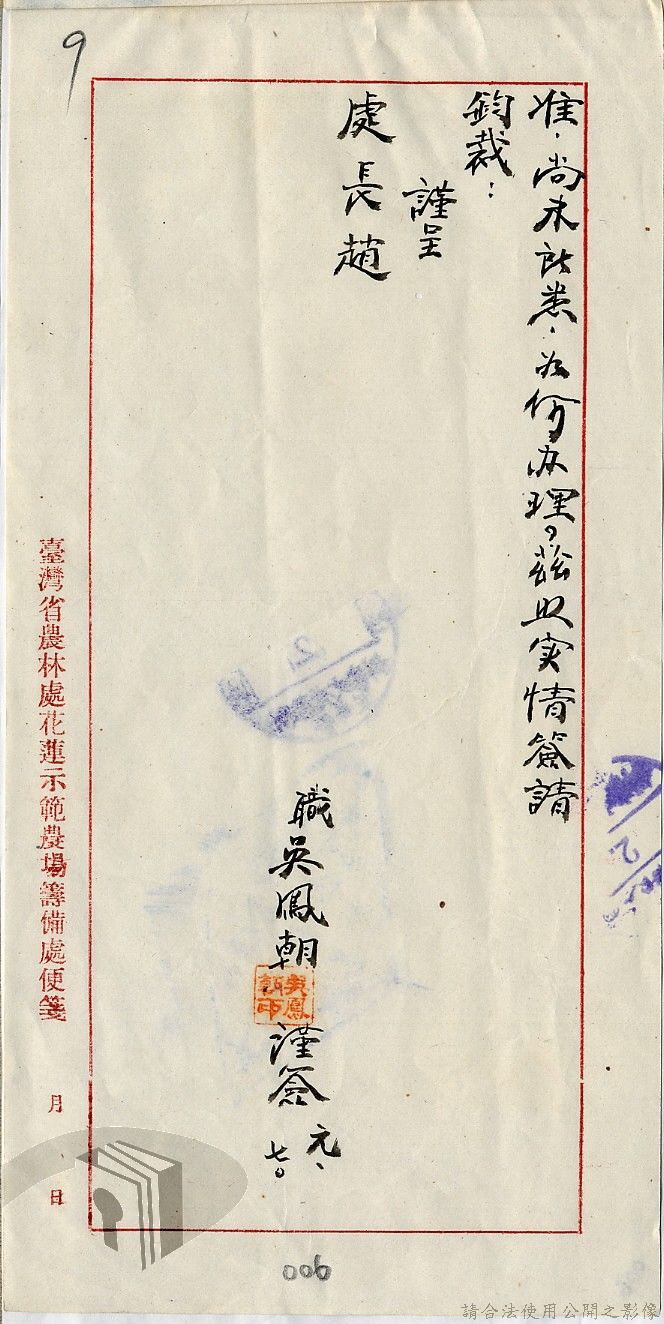 准，尚未訟悉，為何办理，茲照实情簽請
鈞裁：
謹呈
處長趙
職吳鳳朝謹簽
元、七。
臺灣省農林處花蓮示範農場籌備處便箋
月
日
9
006
請合法使用公開之影像